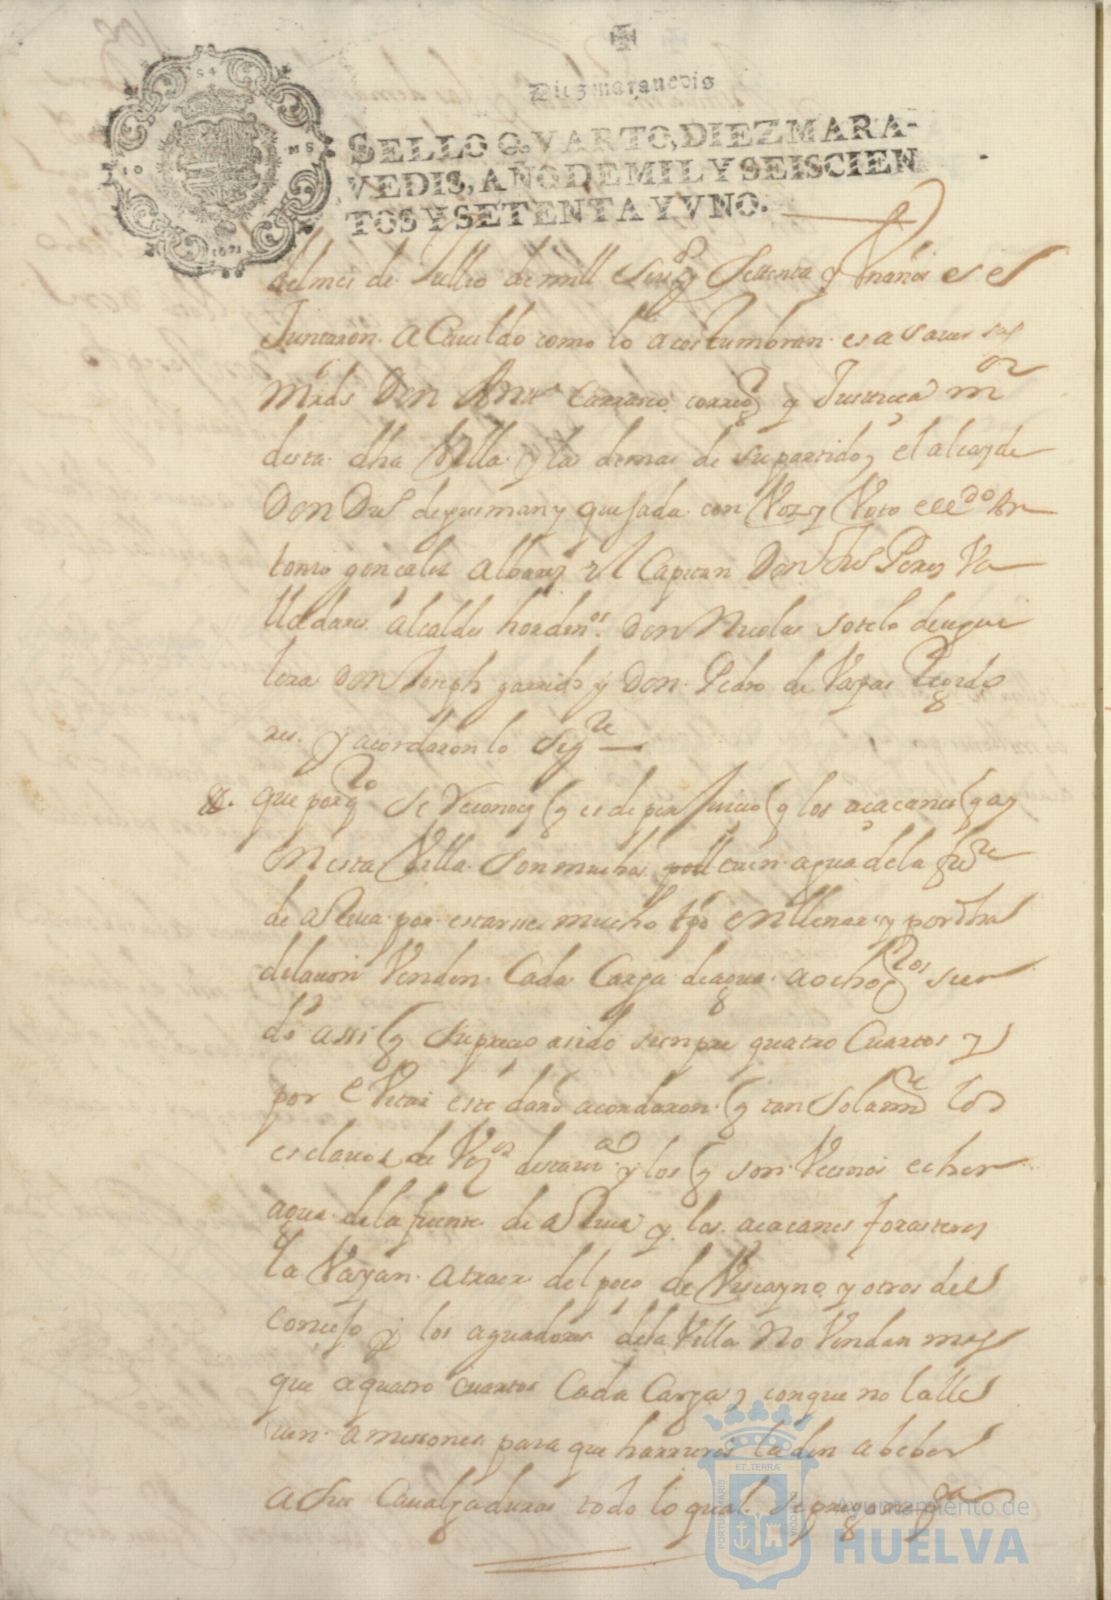 Diezmaravedis
SELLO QVARTO, DIEZ MARA-
VEDIS, AÑO DE MIL Y SEISCIEN
TOS Y SETENTA Y VNO.
1671
del mes de Jullio de mill seisº y settenta y Un años se
Juntaron a Cavildo como lo acostumbran es a saver sus
mrds Don Antº Carrasco corregr y Justicia mor
desta dha Villa y las demas de su partido, el alcayde
Don Dios de guzman y quesada con Voz y Voto el lcdo An
tonio gonçales Albares el Capitan Don Perez Va
lladares alcaldes hordinos Don Nicolas sotelo de agui
lera Don Joseph garrido y Don Pedro de Vayas Regido
res y acordaron lo sigte
que por qto se reconoce q es de perjuicio q los açacanes q ay
en esta Villa son muchos cojen agua de la fte
de por estarse mucho tpo en llenar y por dha
Venden Cada Carga de agua a ocho qtos sien
do assi q su precio a sido siempre quatro Cuartos y
por evitar este daño acordaron q tan solamte los
esclavos de Vezos desta va y los q son Vecinos echen
agua de la fuente de y los acacanes forasteros
la Vayan a traer del poço de Viscayno y otros del
Consejo y los aguadores de la Villa no Vendan mas
que a quatro cuartos Cada Carga y conque no la lle
ven a messones para que harrieros la den a beber
a sus Cavalgaduras todo lo qual se pregone
Ayuntamiento de
HUELVA
PORTUS MARIS
ET TERRÆ
CUSTODIA